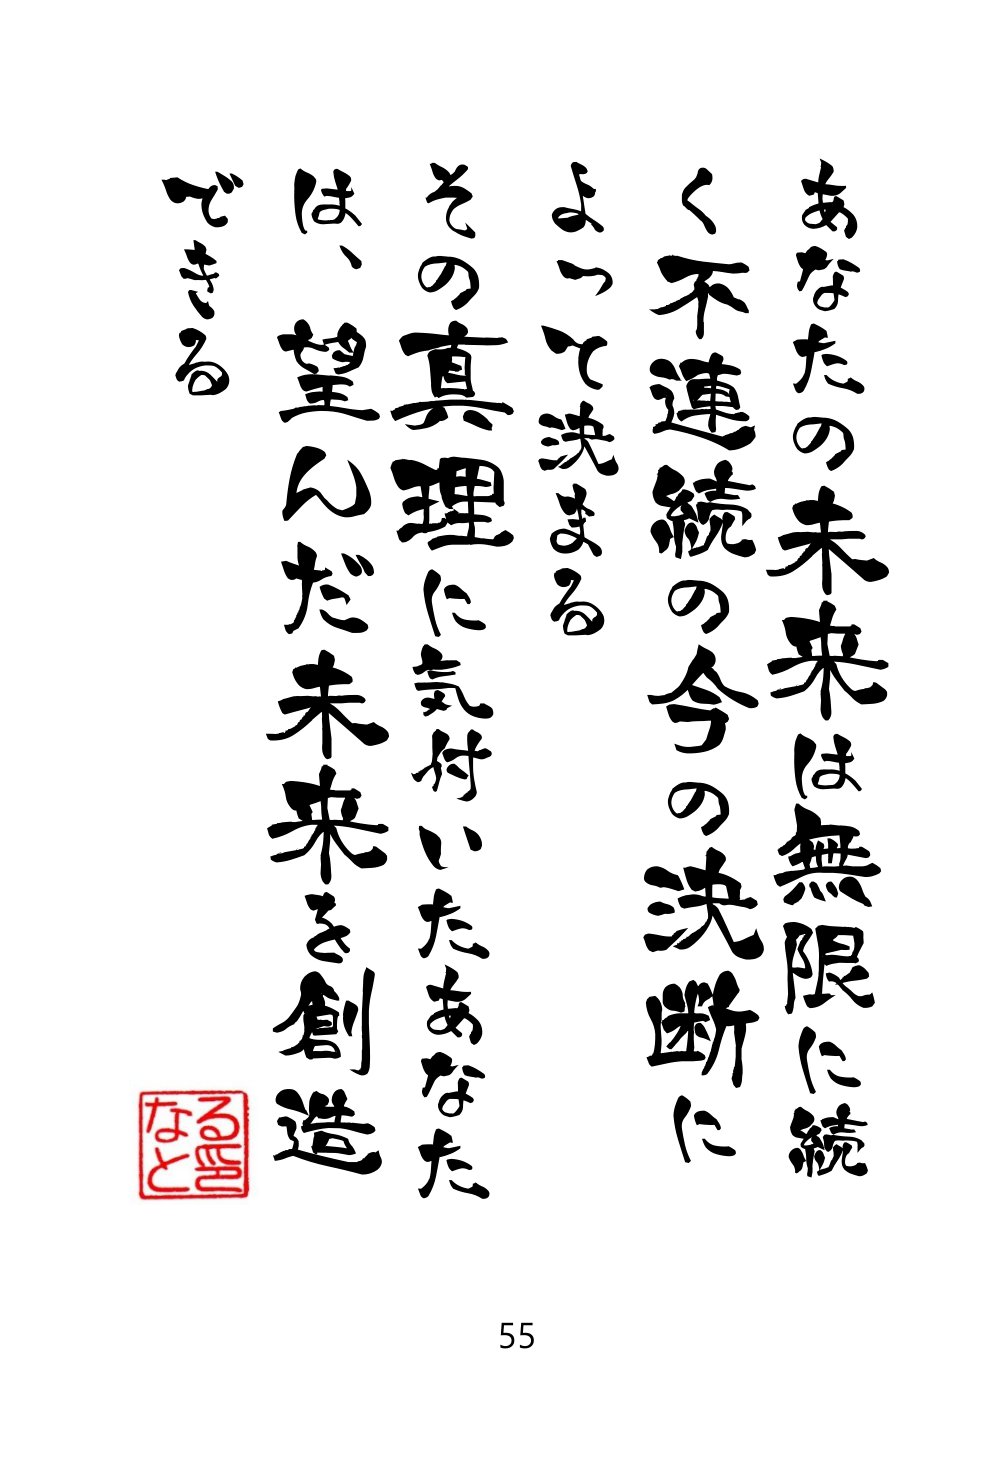 あなたの未来は無限に続
く不連続の今の決断に
よって決まる
その真理に気付いたあなた
は、望んだ未来を創造
できる
55